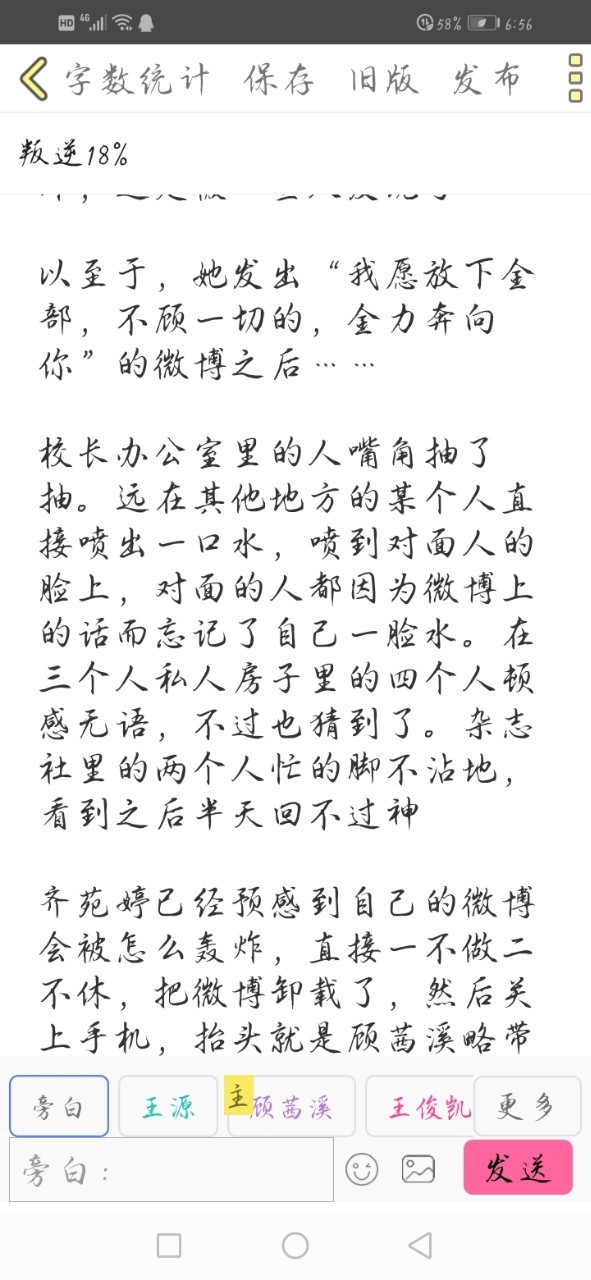 HD 4G 58% 6:56
字数统计 保存 旧版 发布
叛逆18%
以至于，她发出“我愿放下全
部，不顾一切的，全力奔向
你”的微博之后……
校长办公室里的人嘴角抽了
抽。远在其他地方的某个人直
接喷出一口水，喷到对面人的
脸上，对面的人都因为微博上
的话而忘记了自己一脸水。在
三个人私人房子里的四个人顿
感无语，不过也猜到了。杂志
社里的两个人忙的脚不沾地，
看到之后半天回不过神
齐苑婷已经预感到自己的微博
会被怎么轰炸，直接一不做二
不休，把微博卸载了，然后关
上手机，抬头就是顾茜溪略带
旁白 王源 主 顾茜溪 王俊凯 更多
旁白： 发送